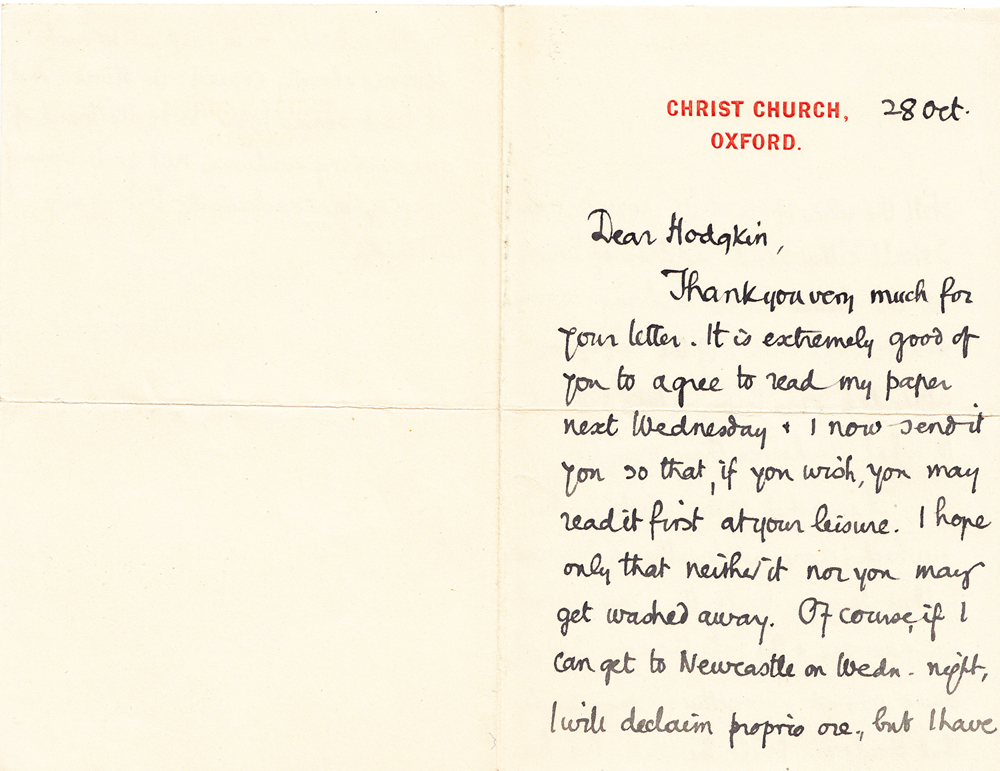 CHRIST CHURCH, 28 Oct.
OXFORD.
Dear Hodgkin,
Thank you very much for
your letter. It is extremely good of
you to agree to read my paper
next Wednesday & I now send it
you so that, if you wish, you may
read it first at your leisure. I hope
only that neither it nor you may
get washed away. Of course, if I
can get to Newcastle on Wedn. night,
I will declaim proprio ore, but I have